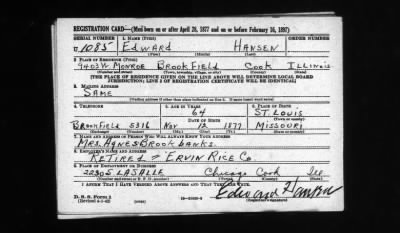 REGISTRATION CARD—(Men born on or after April 28, 1877 and on or before February 16, 1897)
SERIAL NUMBER 1. NAME (Print)
U 1085 EDWARD HANSEN
(First) (Middle) (Last)
2. PLACE OF RESIDENCE (Print)
9403 W. MONROE BROOKFIELD COOK ILLINOIS
(Number and street) (Town, township, village, or city) (County) (State)
[THE PLACE OF RESIDENCE GIVEN ON THE LINE ABOVE WILL DETERMINE LOCAL BOARD
JURISDICTION; LINE 2 OF REGISTRATION CERTIFICATE WILL BE IDENTICAL]
3. MAILING ADDRESS
SAME
[Mailing address if other than place indicated on line 2. If same insert word same]
4. TELEPHONE 5. AGE IN YEARS 6. PLACE OF BIRTH
64 ST. LOUIS
DATE OF BIRTH (Town or county)
BROOKFIELD 5316 NOV 12 1877 MISSOURI
(Exchange) (Number) (Mo.) (Day) (Yr.) (State or country)
7. NAME AND ADDRESS OF PERSON WHO WILL ALWAYS KNOW YOUR ADDRESS
MRS. AGNES BROOKBANKS.
8. EMPLOYER'S NAME AND ADDRESS
RETIRED - ERVIN RICE CO.
9. PLACE OF EMPLOYMENT OR BUSINESS
2230 S. LASALLE Chicago Cook Ill
(Number and street or R. F. D. number) (Town) (County) (State)
I AFFIRM THAT I HAVE VERIFIED ABOVE ANSWERS AND THAT THEY ARE TRUE.
D. S. S. Form 1
(Revised 4-1-42) (over) Edward Hansen